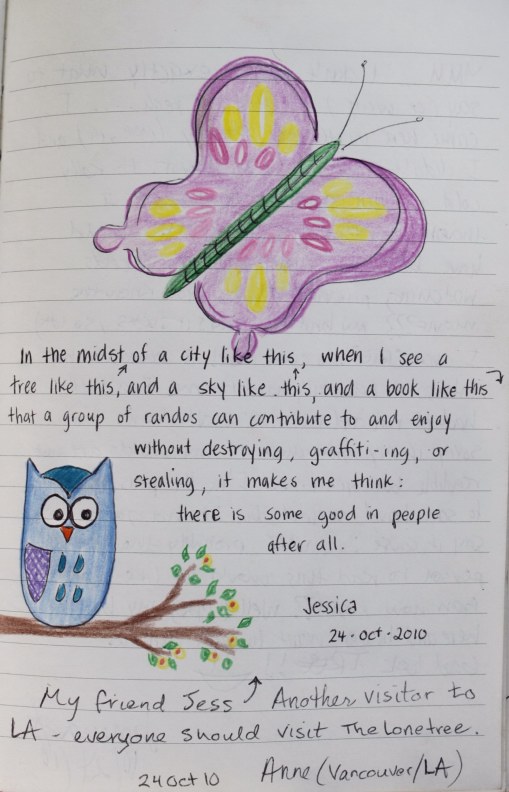 In the midst of a city like this, when I see a
tree like this, and a sky like this, and a book like this
that a group of randos can contribute to and enjoy
without destroying, graffiti-ing, or
stealing, it makes me think:
there is some good in people
after all.
Jessica
24·oct·2010
My friend Jess ↗ Another visitor to
LA - everyone should visit The lone tree.
24 Oct 10 Anne (Vancouver/LA)